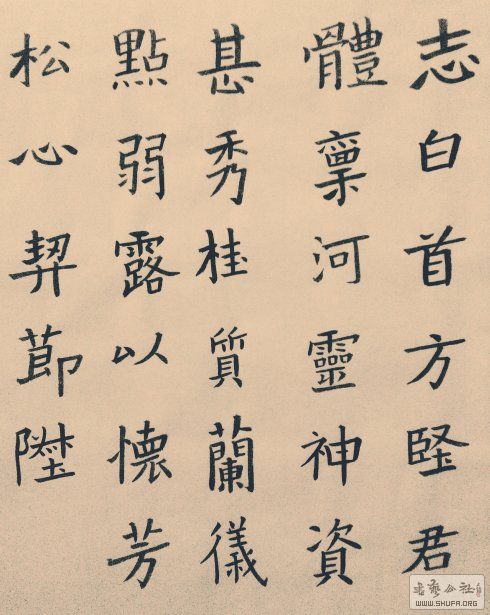 志白首方堅君
體稟河靈神資
甚秀桂質蘭儀
點弱露以懷芳
松心契節
書藝公社
WWW.SHUFA.ORG